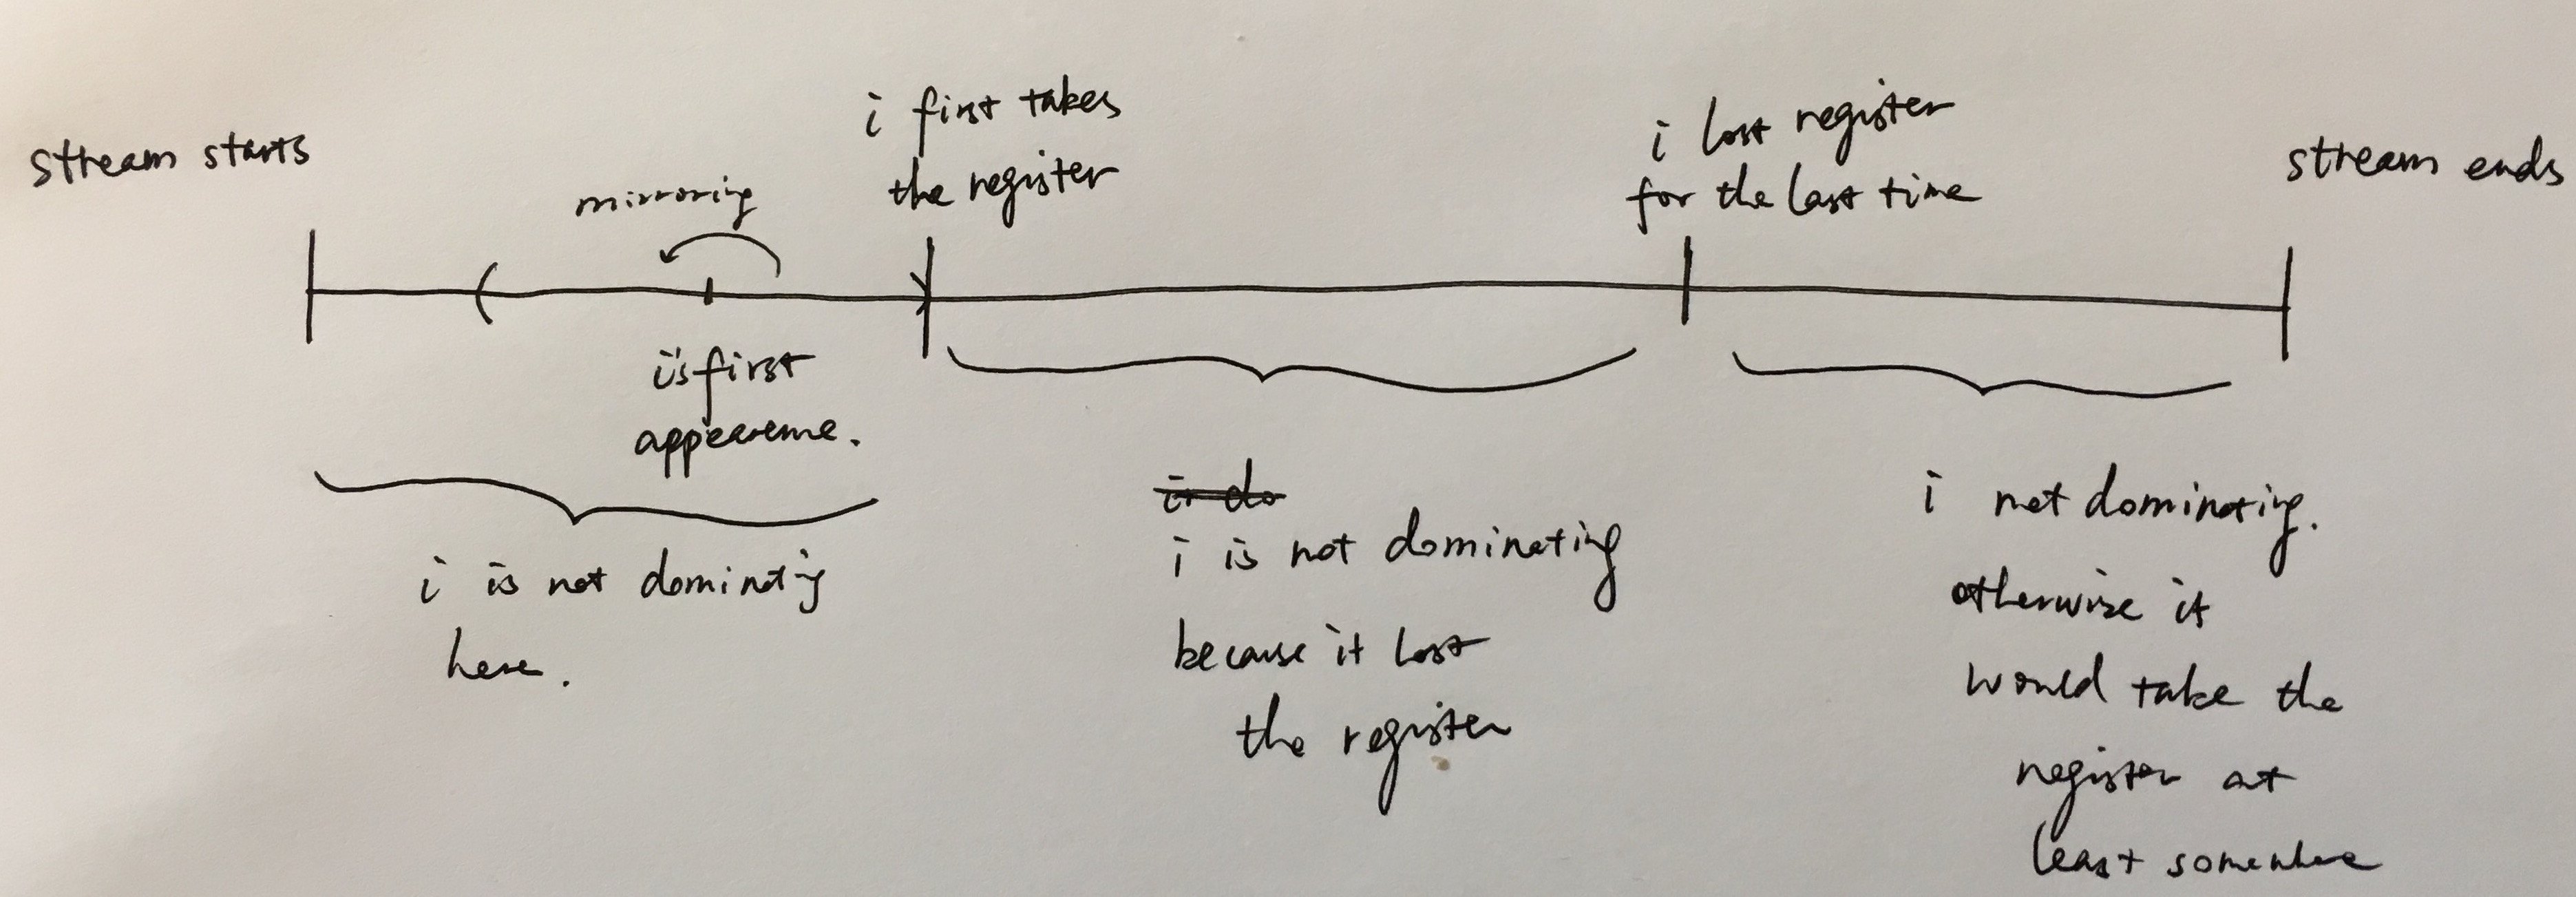 stream starts
mirroring
i first takes
the register
i lost register
for the last time
stream ends
i's first
appearance.
i is not dominating
here.
i do
i is not dominating
because it lost
the register
i not dominating.
otherwise it
would take the
register at
least somewhere